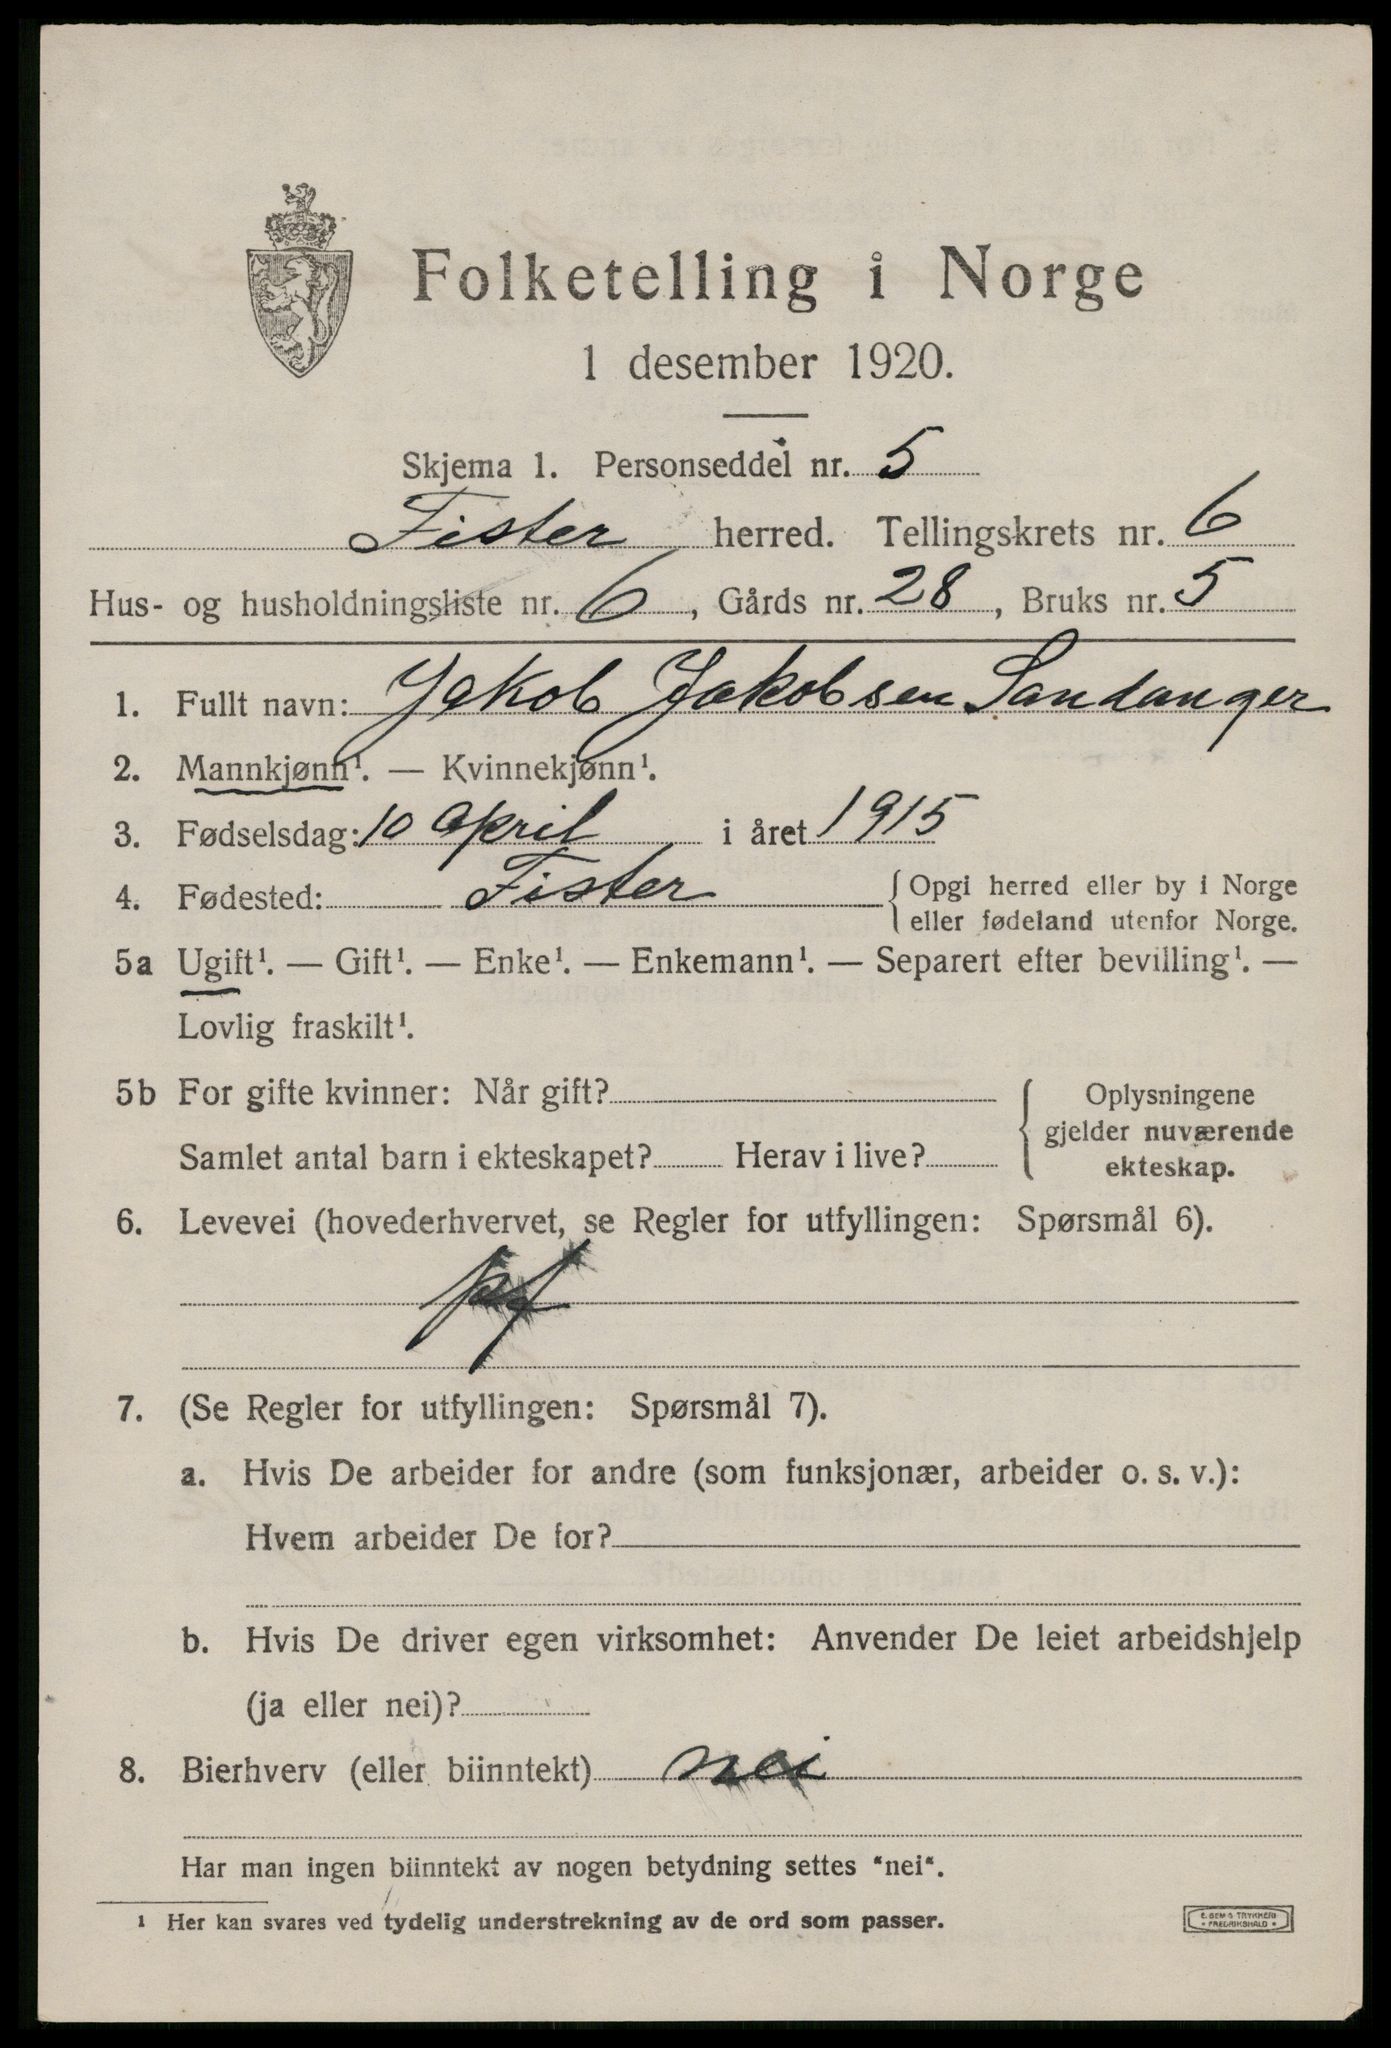 Folketelling i Norge
1 desember 1920.
Skjema 1. Personseddel nr. 5
Fister herred. Tellingskrets nr. 6
Hus- og husholdningsliste nr. 6, Gårds nr. 28, Bruks nr. 5
1. Fullt navn: Jakob Jakobsen Sandanger
2. Mannkjønn¹. — Kvinnekjønn¹.
3. Fødselsdag: 10 april i året 1915
4. Fødested: Fister { Opgi herred eller by i Norge
eller fødeland utenfor Norge.
5a Ugift¹. — Gift¹. — Enke¹. — Enkemann¹. — Separert efter bevilling¹. —
Lovlig fraskilt¹.
5b For gifte kvinner: Når gift? { Oplysningene
gjelder nuværende
Samlet antal barn i ekteskapet? Herav i live?
ekteskap.
6. Levevei (hovederhvervet, se Regler for utfyllingen: Spørsmål 6).
7. (Se Regler for utfyllingen: Spørsmål 7).
a. Hvis De arbeider for andre (som funksjonær, arbeider o. s. v.):
Hvem arbeider De for?
b. Hvis De driver egen virksomhet: Anvender De leiet arbeidshjelp
(ja eller nei)?
8. Bierhverv (eller biinntekt) nei
Har man ingen biinntekt av nogen betydning settes "nei".
¹ Her kan svares ved tydelig understrekning av de ord som passer.
E. SEM'S TRYKKERI
* FREDRIKSHALD *